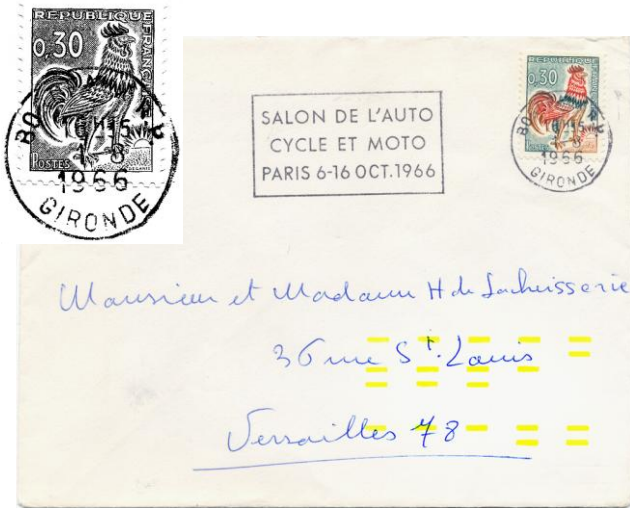 REPUBLIQUE FRANCAISE
0,30
16H15
1-8
1966
GIRONDE
POSTES
SALON DE L'AUTO
CYCLE ET MOTO
PARIS 6-16 OCT.1966
REPUBLIQUE
0,30
16H15
1-8
1966
GIRONDE
Monsieur et Madame H de Lacheisserie
36 rue St. Louis
Versailles 78